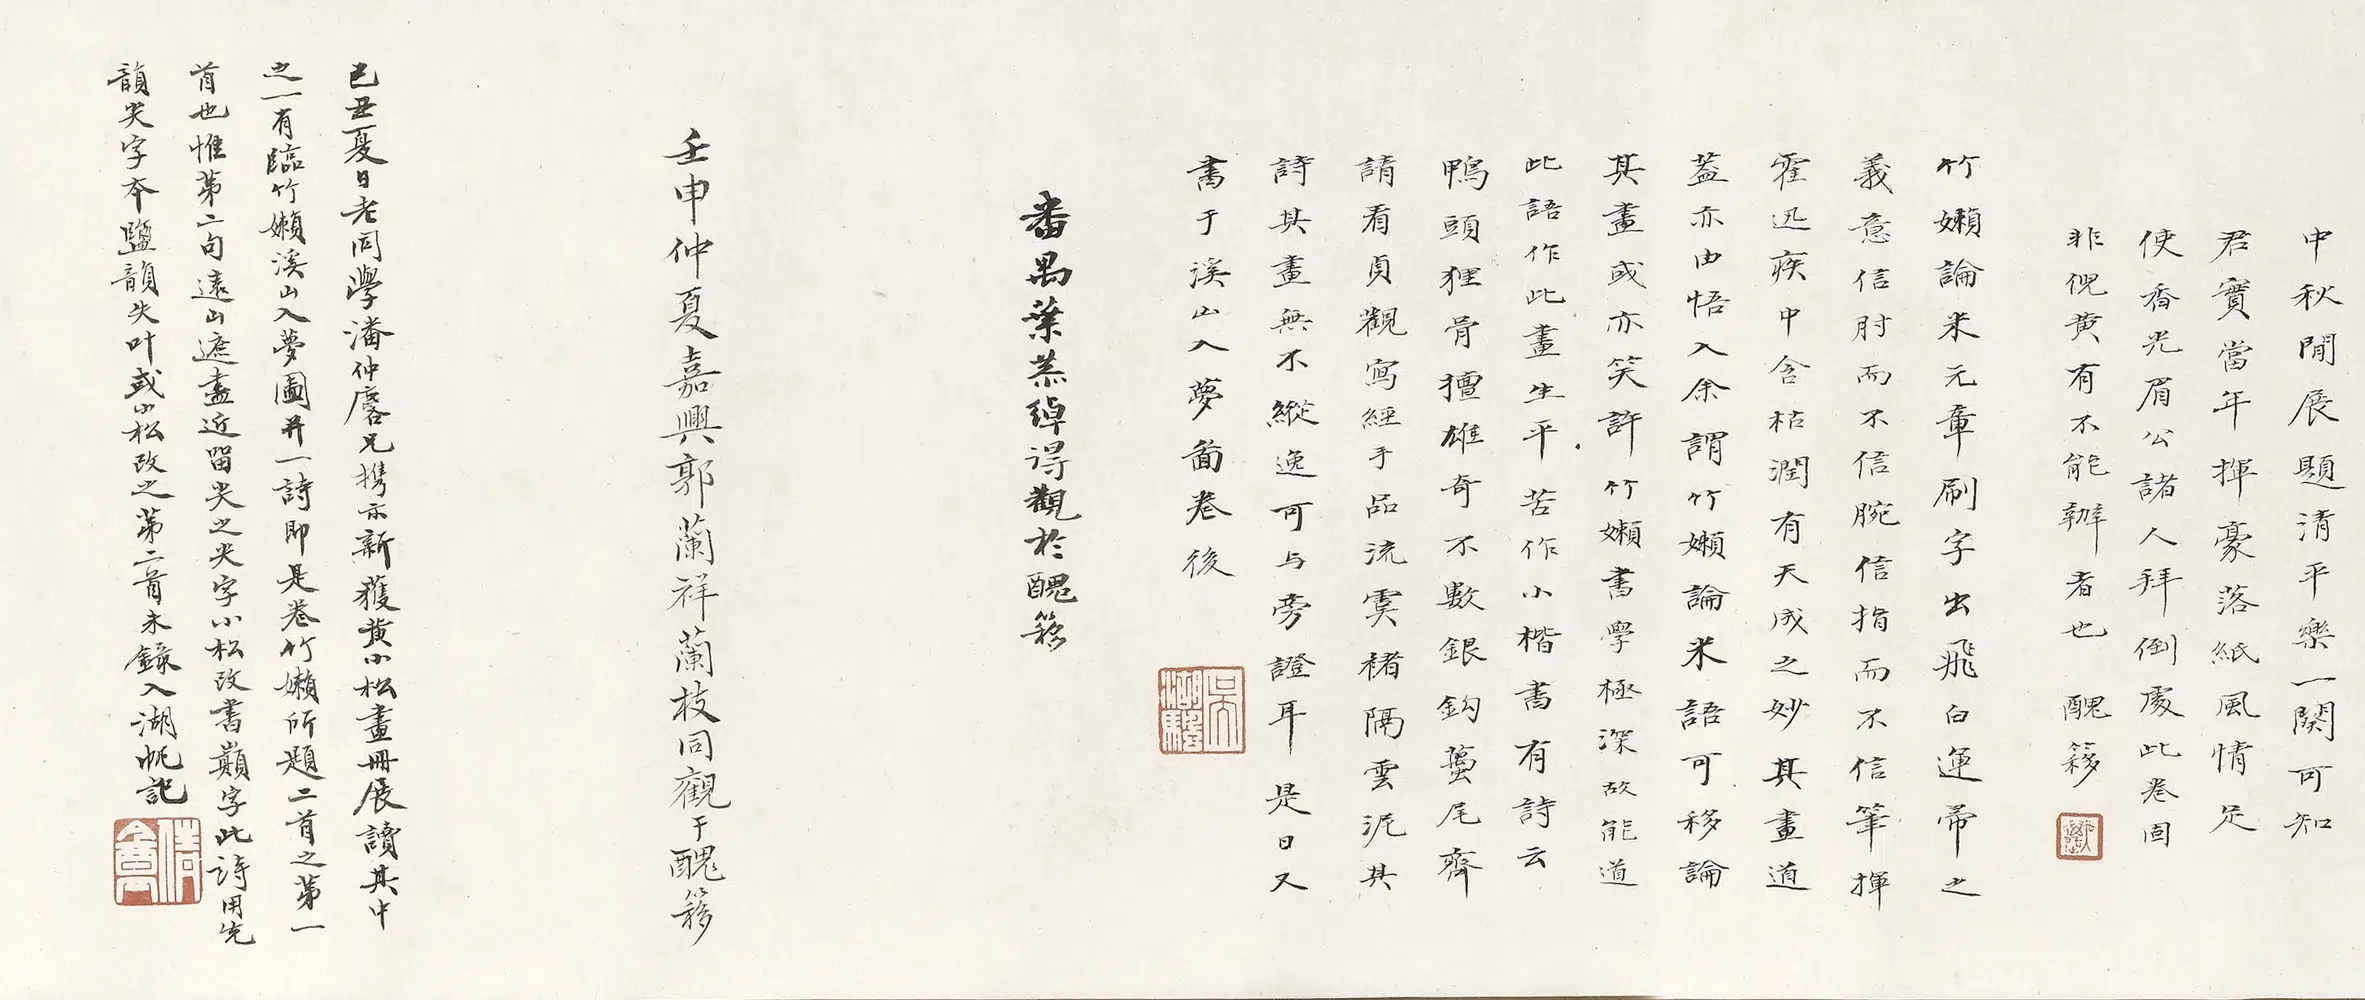 中秋閒展題清平樂一闋可知
君實當年揮豪落紙風情足
使香光眉公諸人拜倒處此卷固
非倪黃有不能辦者也 醜簃
竹嬾論米元章刷字出飛白運帚之
義意信肘而不信腕信指而不信筆揮
霍迅疾中含枯潤有天成之妙其畫道
葢亦由悟入余謂竹嬾論米語可移論
其畫或亦笑許竹嬾書學極深故能道
此語作此畫生平苦作小楷書有詩云
鴨頭狸骨擅雄奇不數銀鈎蠆尾齊
請看貞觀寫經手品流霙褚隔雲泥其
詩其畫無不縱逸可与旁證耳是日又
書于溪山入夢啚卷後
吳湖驂
番禺葉恭綽得觀於醜簃
壬申仲夏嘉興郭蘭祥蘭枝同觀于醜簃
己丑夏日老同學潘仲麐兄攜示新獲黃小松畫冊展讀其中
之一有臨竹嬾溪山入夢圖并一詩即是卷竹嬾所題二首之第一
首也惟第二句遠山遮盡近留尖之尖字小松改書巔字此詩用先
韻尖字本鹽韻失叶或小松改之第二首未錄入湖帆記
倩盦